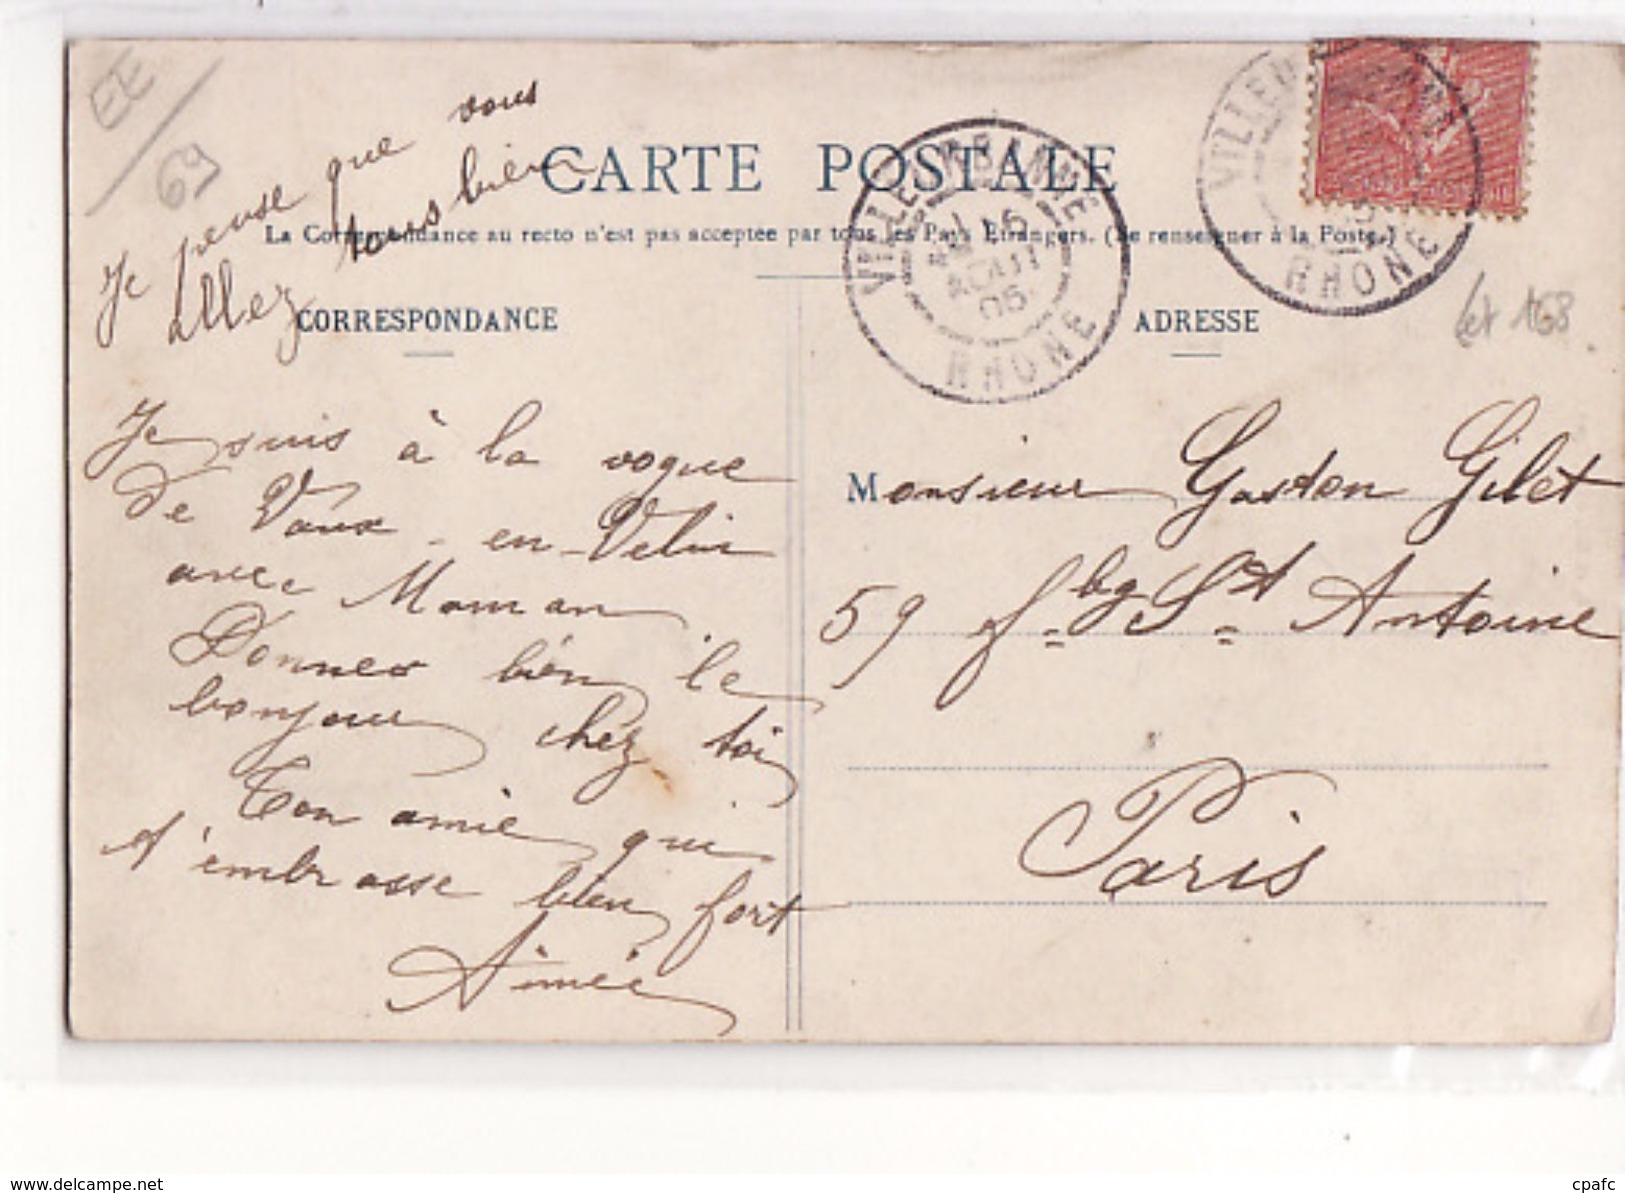 EE
69
Je pense que vous
allez tous bien
CARTE POSTALE
La Correspondance au recto n'est pas acceptée par tous les Pays Etrangers. (Se renseigner à la Poste.)
CORRESPONDANCE
ADRESSE
VILLEURBANNE
16
AOUT
05
RHONE
RHONE
168
Je suis à la vogue
de Vaux-en-Velin
avec Maman
Donnes bien le
bonjour chez toi
Ton amie qui
t'embrasse bien fort
Aimée
Monsieur Gaston Gilet
59 fbg St Antoine
Paris
www.delcampe.net
cpafc